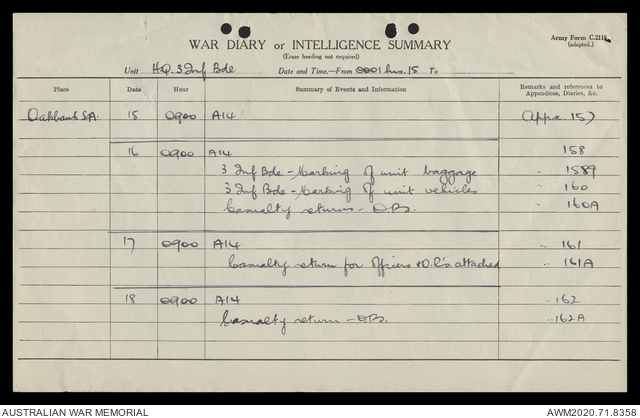 Army Form C.2118.
(adapted.)
WAR DIARY or INTELLIGENCE SUMMARY
(Erase heading not required)
Unit HQ. 3 Inf Bde Date and Time.—From 0001 hrs. 15 To
Place Date Hour Summary of Events and Information Remarks and references to Appendices, Diaries, &c.
Oakbank S.A. 15 0900 A14 Appx. 157
16 0900 A14 158
3 Inf Bde - Marking of unit baggage " 158A
3 Inf Bde - Marking of unit vehicles " 160
Casualty returns - O.Rs. " 160A
17 0900 A14 " 161
Casualty return for Officers & O.R's. attached " 161A
18 0900 A14 " 162
Casualty return - ORs. " 162A
AUSTRALIAN WAR MEMORIAL AWM2020.71.8358